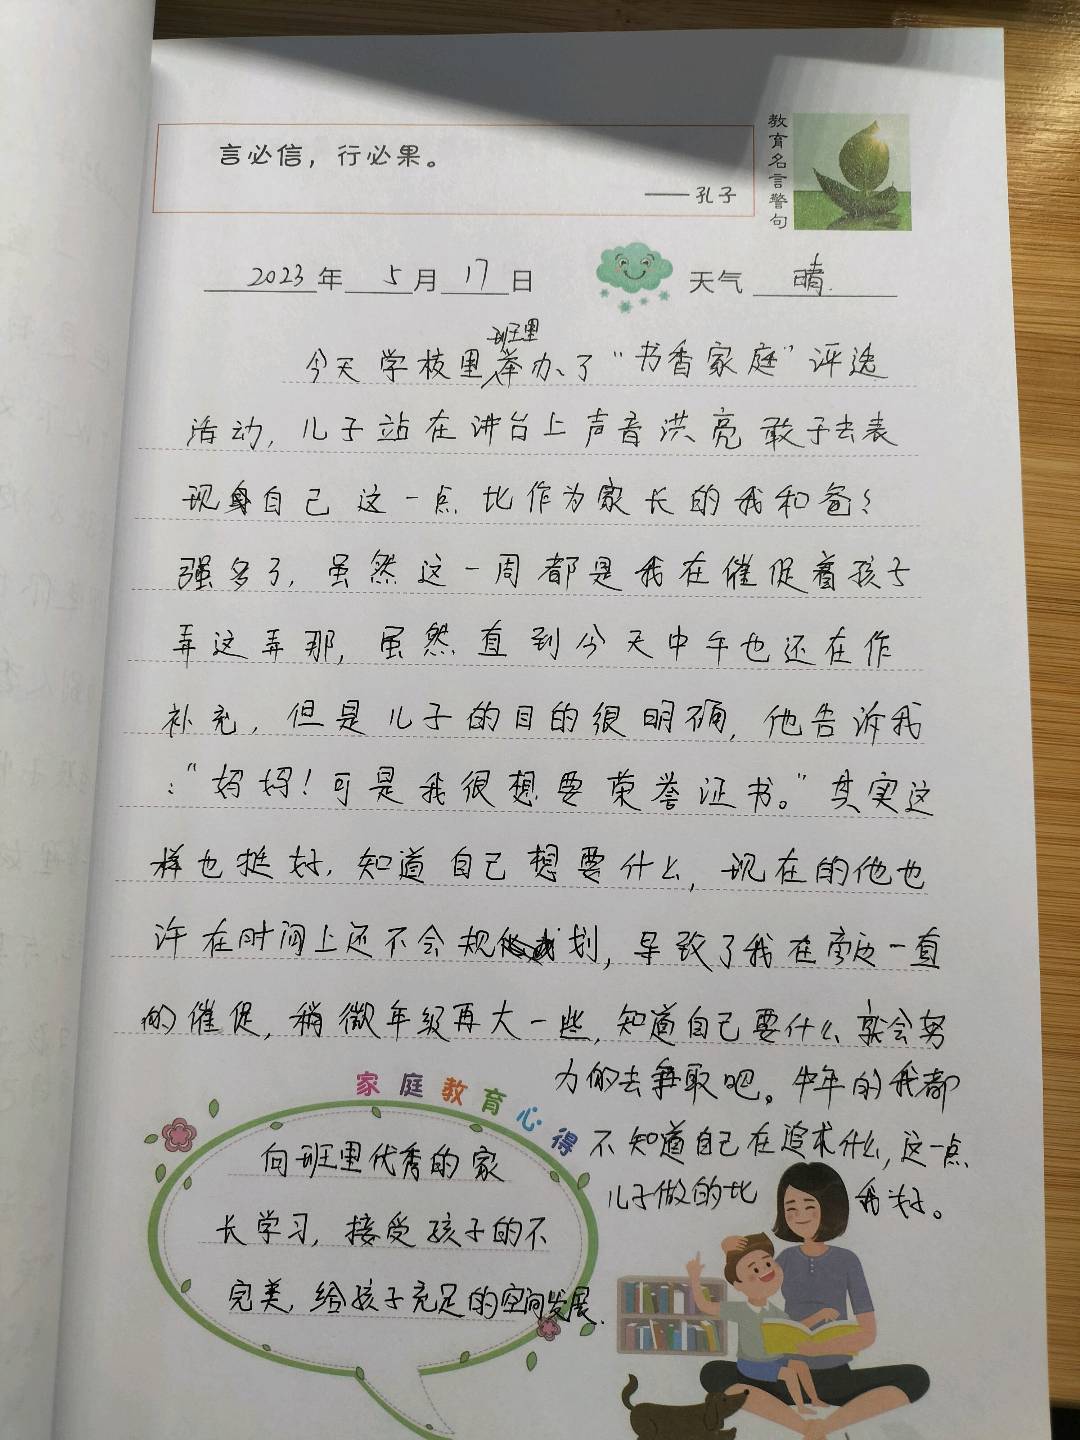 言必信，行必果。
——孔子
教育名言警句
2023年 5月 17日
天气 晴.
今天学校里班里举办了“书香家庭”评选
活动,儿子站在讲台上声音洪亮敢于去表
现自己 这一点 比作为家长的我和爸爸
强多了,虽然这一周都是我在催促着孩子
弄这弄那,虽然直到今天中午也还在作
补充,但是儿子的目的很明确,他告诉我
:“妈妈!可是我很想要荣誉证书。”其实这
样也挺好,知道自己想要什么,现在的他也
许在时间上还不会规划,导致了我在旁边一直
的催促,稍微年级再大一些,知道自己要什么就会努
力的去争取吧。中年的我都
不知道自己在追求什么,这一点
儿子做的比我好。
家庭教育心得
向班里优秀的家
长学习,接受孩子的不
完美,给孩子充足的空间发展.